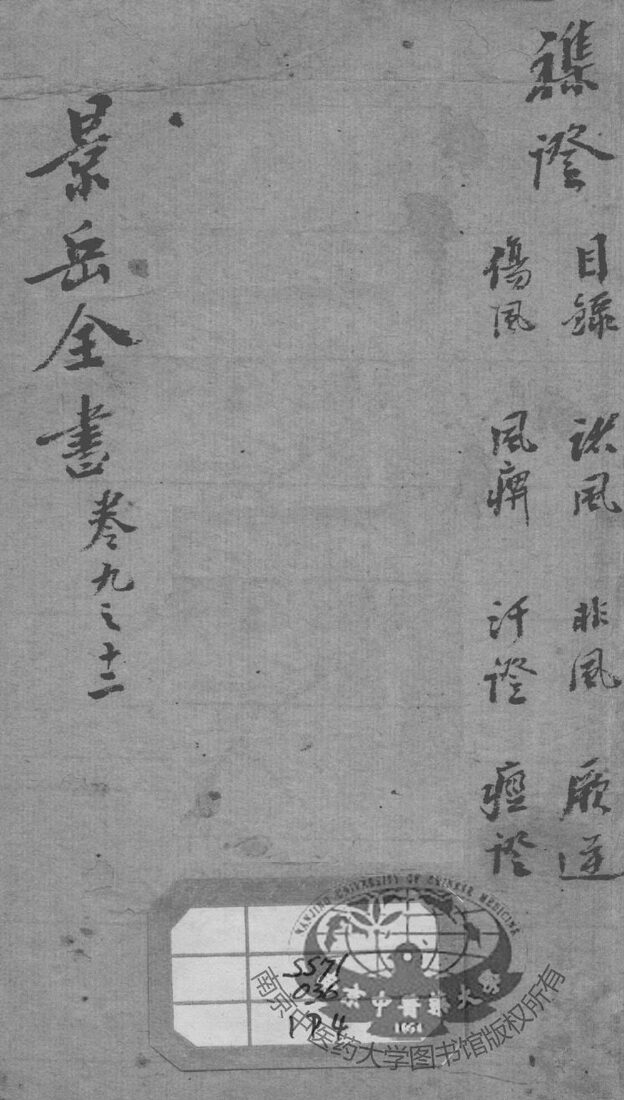 襍證
目錄 諸風 非風 厥逆
傷風 風痹 汗證 痙證
景岳全書 卷九之十二
NANJING UNIVERSITY OF CHINESE MEDICINE
南京中醫藥大學
1954
南京中医药大学图书馆版权所有
SS71
036
1P.4